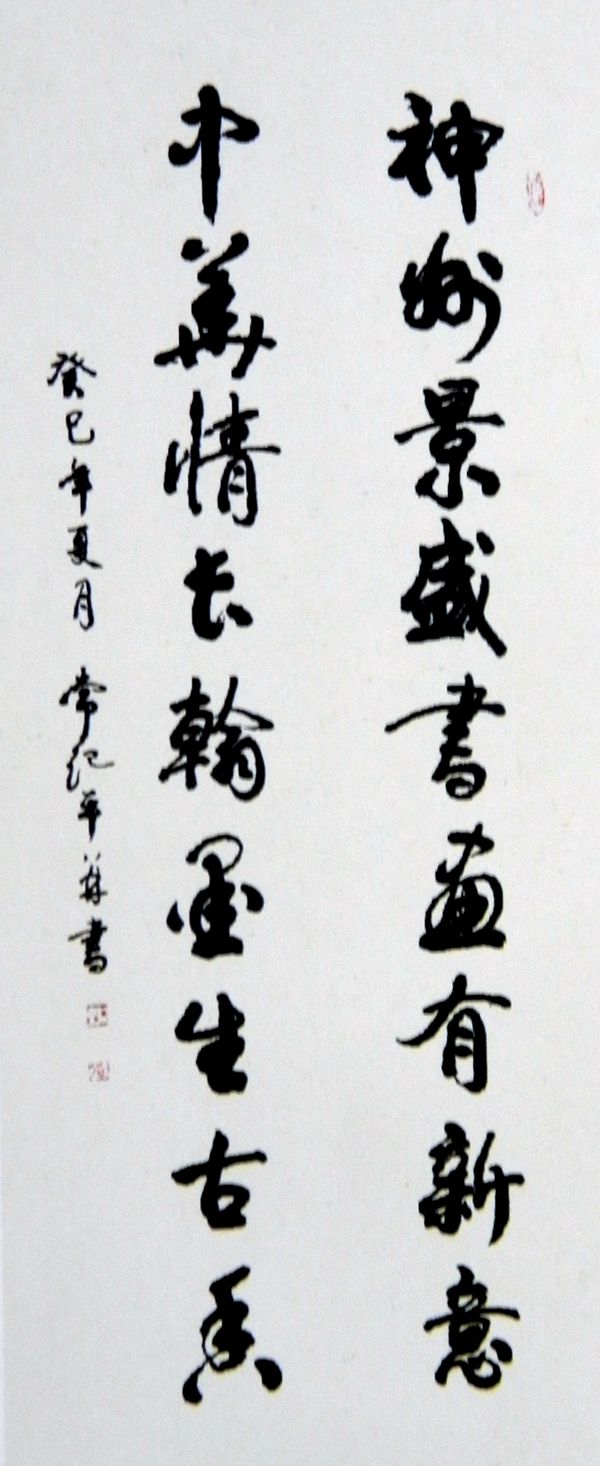 神州景盛書畫有新意
中華情长翰墨生古香
癸巳年夏月 常纪平并書